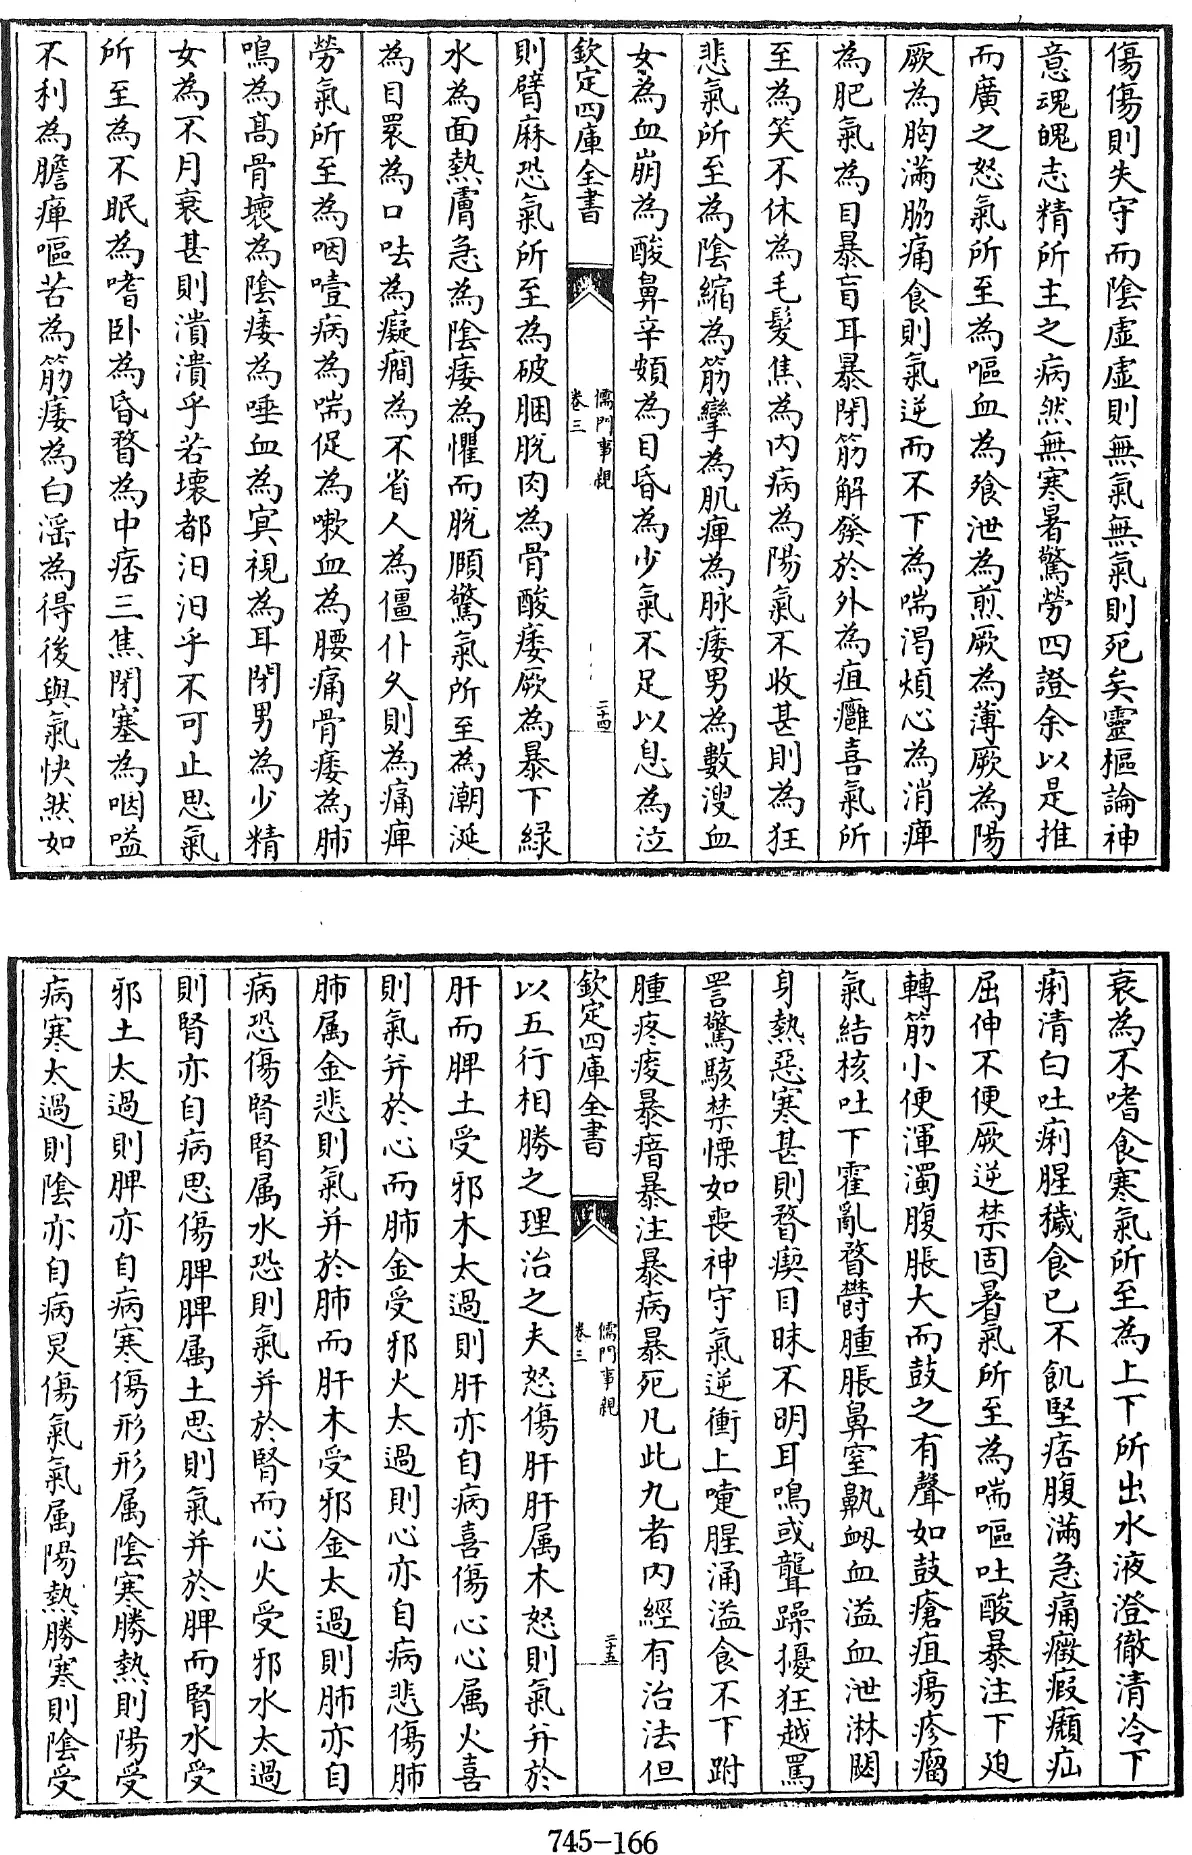 傷傷則失守而陰虛虛則無氣無氣則死矣靈樞論神
意魂魄志精所主之病然無寒暑驚勞四證余以是推
而廣之怒氣所至為嘔血為飱泄為煎厥為薄厥為陽
厥為胸滿脇痛食則氣逆而不下為喘渴煩心為消癉
為肥氣為目暴盲耳暴閉筋解發於外為疽癰喜氣所
至為笑不休為毛髮焦為內病為陽氣不收甚則為狂
悲氣所至為陰縮為筋攣為肌痺為脉痿男為數溲血
女為血崩為酸鼻辛頞為目昏為少氣不足以息為泣
欽定四庫全書
儒門事親
卷三
二十四
則臂麻恐氣所至為破䐃脫肉為骨酸痿厥為暴下綠
水為面熱膚急為陰痿為懼而脫頤驚氣所至為潮涎
為目睘為口呿為癡癎為不省人為僵仆久則為痛痺
勞氣所至為咽噎病為喘促為嗽血為腰痛骨痿為肺
鳴為髙骨壞為陰痿為唾血為寘視為耳閉男為少精
女為不月衰甚則潰潰乎若壞都汨汨乎不可止思氣
所至為不眠為嗜卧為昏瞀為中痞三焦閉塞為咽嗌
不利為膽癉嘔苦為筋痿為白淫為得後與氣快然如
衰為不嗜食寒氣所至為上下所出水液澄徹清冷下
痢清白吐痢腥穢食已不飢堅痞腹滿急痛癥瘕㿗疝
屈伸不便厥逆禁固暑氣所至為喘嘔吐酸暴注下廹
轉筋小便渾濁腹脹大而鼓之有聲如鼓瘡疽瘍疹瘤
氣結核吐下霍亂瞀鬱腫脹鼻窒鼽衂血溢血泄淋閟
身熱惡寒甚則瞀瘈目昧不明耳鳴或聾躁擾狂越罵
詈驚駭禁慄如喪神守氣逆衝上嚏腥涌溢食不下跗
腫疼痠暴瘖暴注暴病暴死凡此九者內經有治法但
欽定四庫全書
儒門事親
卷三
二十五
以五行相勝之理治之夫怒傷肝肝属木怒則氣并於
肝而脾土受邪木太過則肝亦自病喜傷心心属火喜
則氣并於心而肺金受邪火太過則心亦自病悲傷肺
肺属金悲則氣并於肺而肝木受邪金太過則肺亦自
病恐傷腎腎属水恐則氣并於腎而心火受邪水太過
則腎亦自病思傷脾脾属土思則氣并於脾而腎水受
邪土太過則脾亦自病寒傷形形属陰寒勝熱則陽受
病寒太過則陰亦自病炅傷氣氣属陽熱勝寒則陰受
745-166